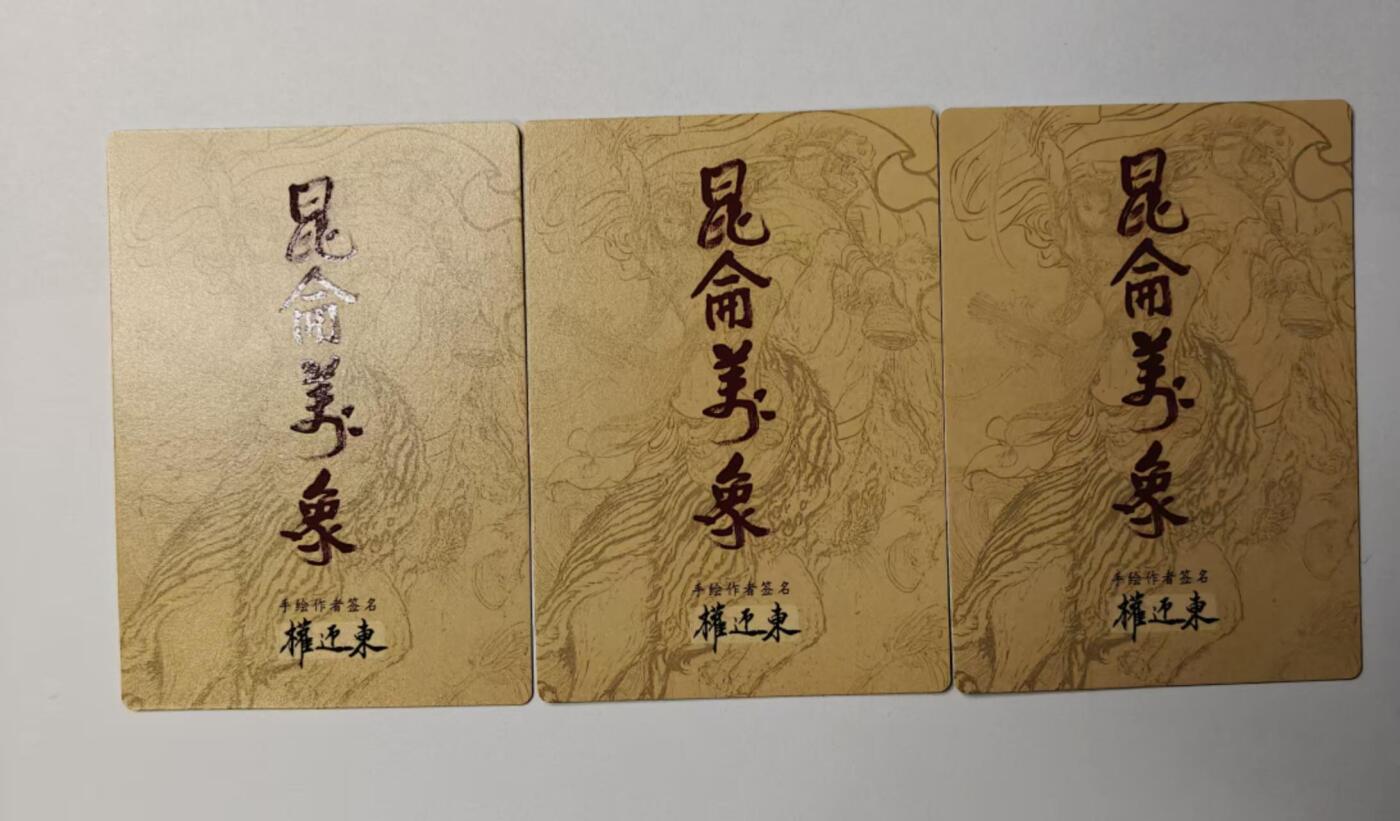 昆侖萬象
手绘作者签名
權迎東
昆侖萬象
手绘作者签名
權迎東
昆侖萬象
手绘作者签名
權迎東